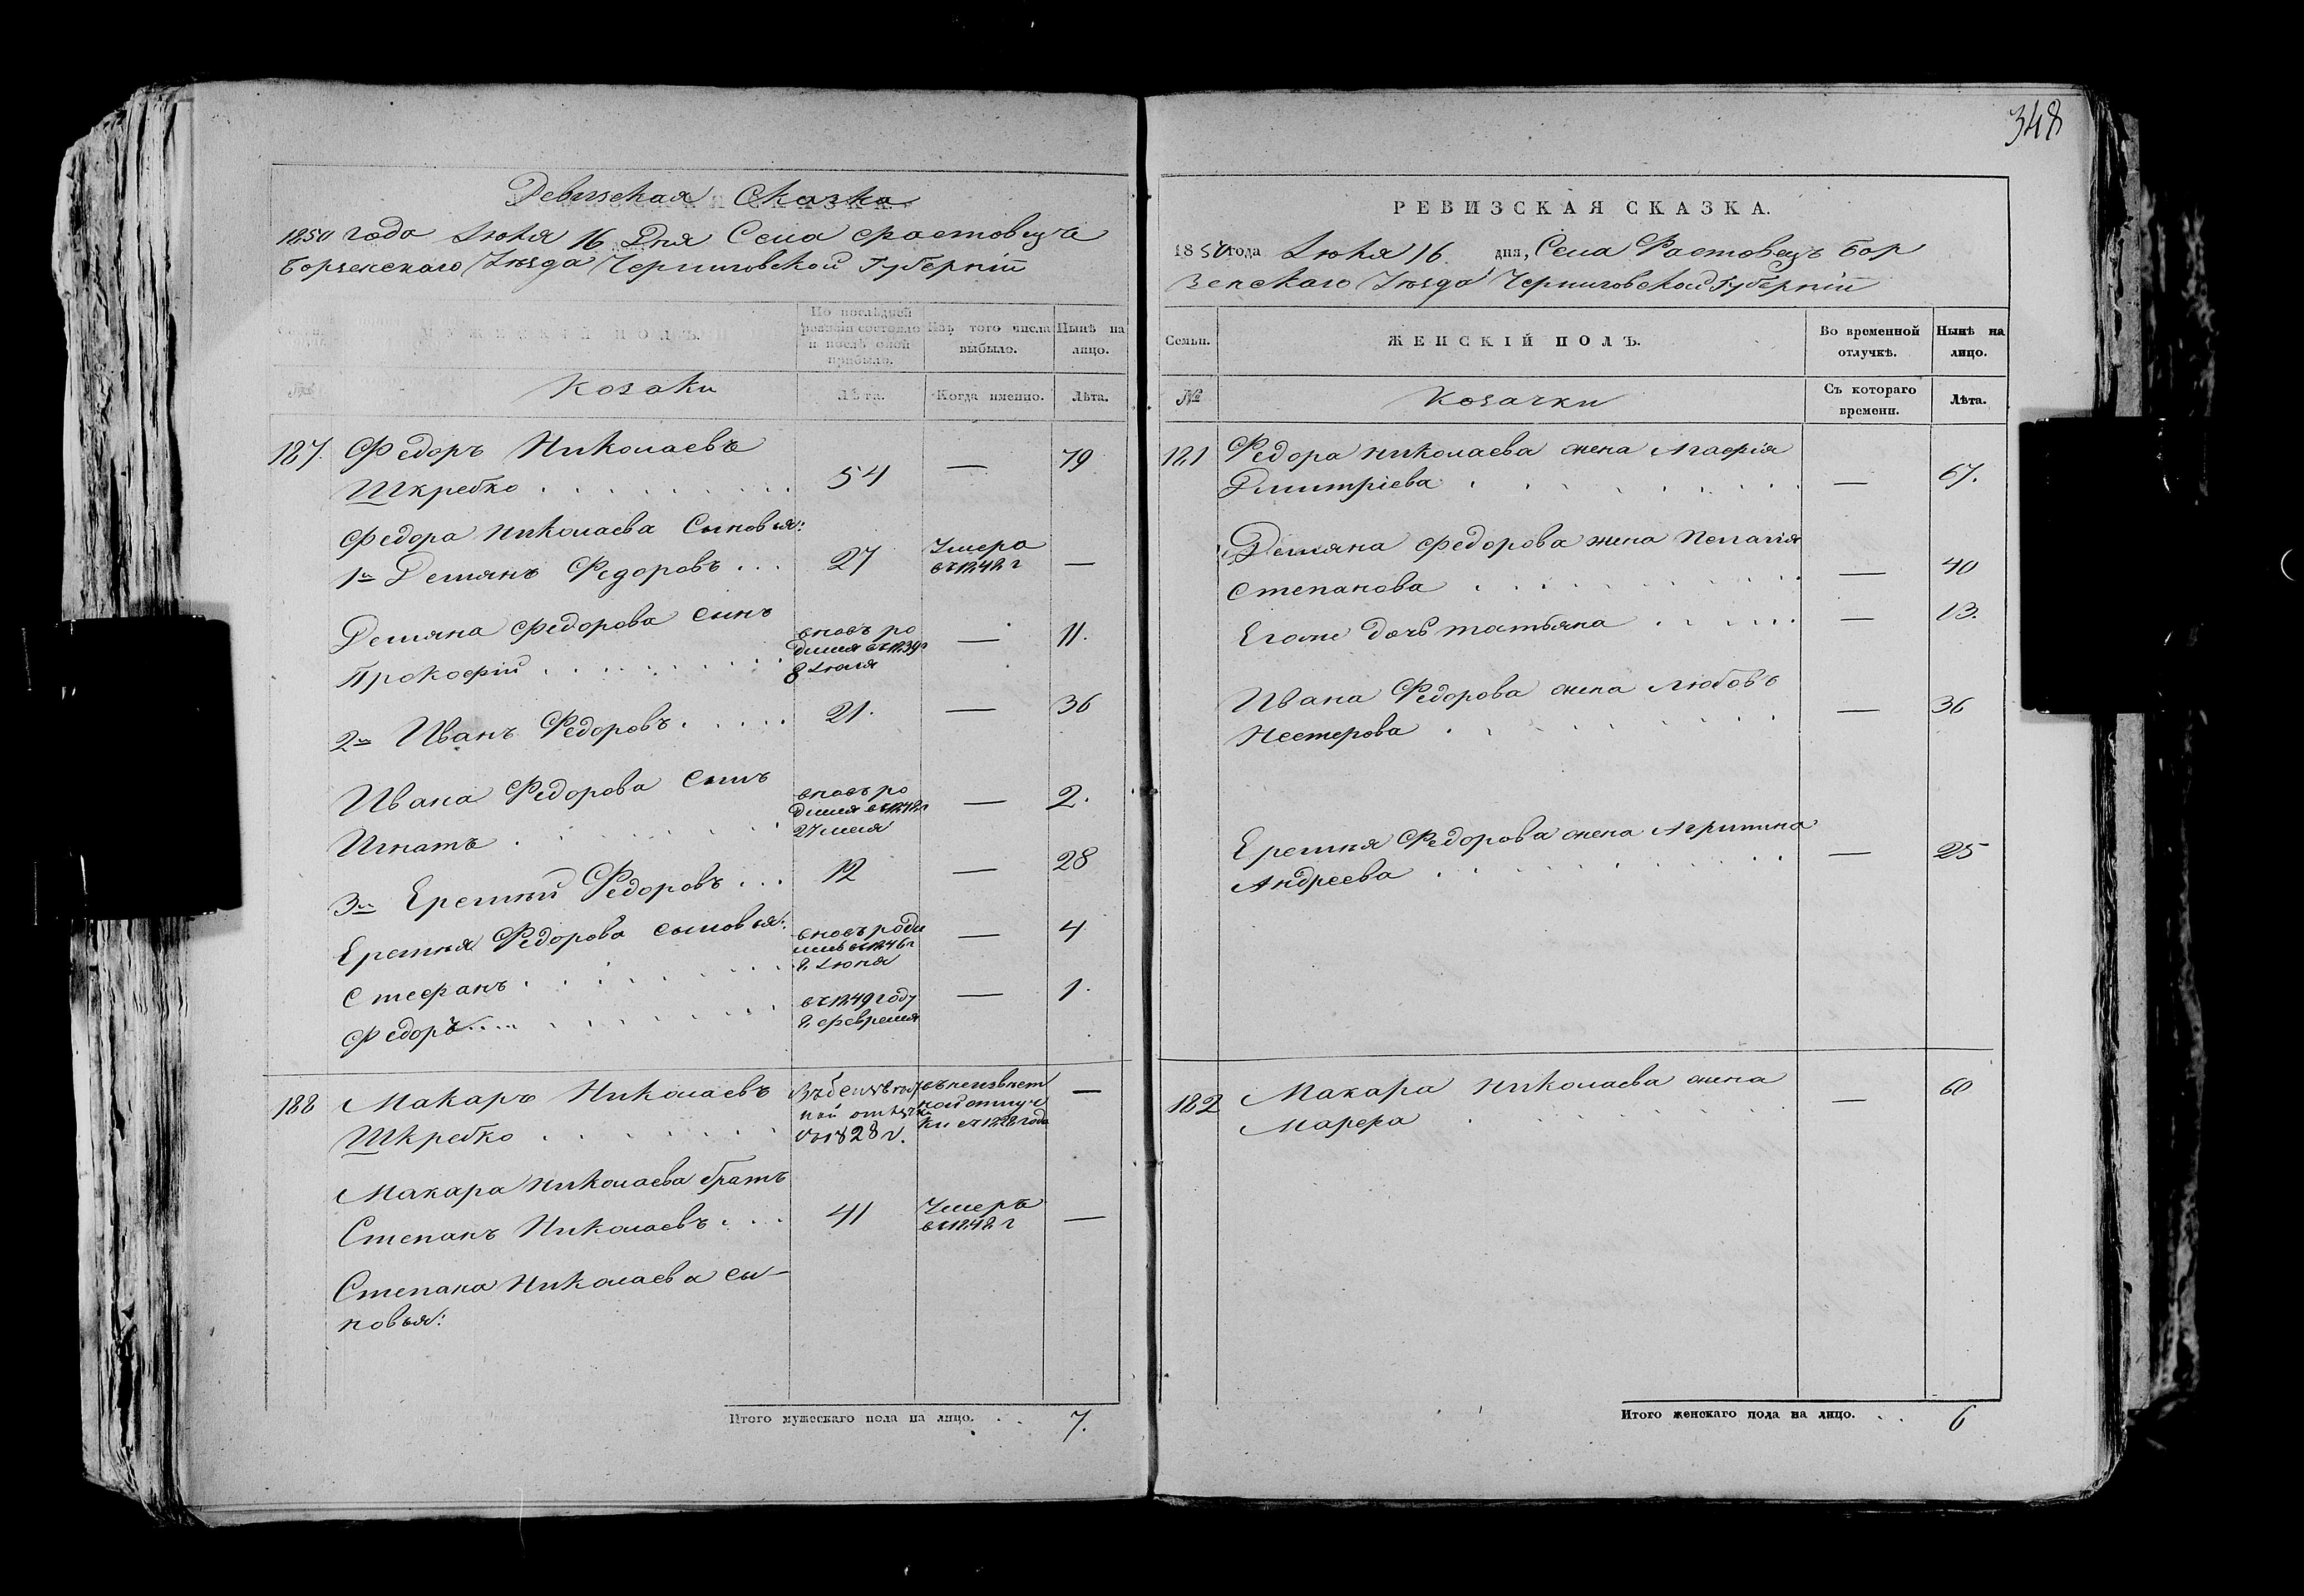 348
Ревизская Сказка
1850 года Июня 16 Дня Села Фастовецъ
Борзенскаго Уѣзда Черниговской Губернiи
По послѣдней
ревизiи состояло
и послѣ оной
прибыло.
Изъ того числа
выбыло.
Нынѣ на
лицо.
МУЖЕСКIЙ ПОЛЪ.
№
Козаки
Лѣта.
Когда именно.
Лѣта.
187. Федоръ Николаевъ
Шкребко 54 — 79
Федора Николаева Сыновья:
1й Демянъ Федоровъ 27 Умеръ
въ 1842 г —
Демяна Федорова сынъ
Прокофiй вновь ро
дился въ 1839 г
8 Iюля — 11.
2й Иванъ Федоровъ 21. — 36
Ивана Федорова сынъ
Игнатъ вновь ро
дился въ 1848 г
27 мая — 2.
3й Еремѣй Федоровъ 12 — 28
Еремѣя Федорова сыновья:
Стефанъ вновь роди
лись въ 1846 г
2 Iюня — 4
Федоръ въ 1849 году
2 февраля — 1.
188 Макаръ Николаевъ
Шкребко въ 1828 г. —
Макара Николаева братъ
Степанъ Николаевъ 41 Умеръ
въ 1842 г —
Степана Николаева сы-
новья:
Итого мужескаго пола на лицо. 7.
РЕВИЗСКАЯ СКАЗКА.
1850 года Июня 16 дня, Села Фастовецъ Бор
зенскаго Уѣзда Черниговской Губернiи
Семьи.
ЖЕНСКIЙ ПОЛЪ.
Во временной
отлучкѣ.
Нынѣ на
лицо.
№
Козачки
Съ котораго
времени.
Лѣта.
181 Федора Николаева жена Агафiя
Дмитрiева — 67.
Демяна Федорова жена Пелагiя
Степанова — 40
Егоже дочь Татьяна — 13.
Ивана Федорова жена Любовъ
Нестерова — 36
Еремѣя Федорова жена Агрипина
Андреева — 25
182 Макара Николаева жена
Марфа — 60
Итого женскаго пола на лицо. 6